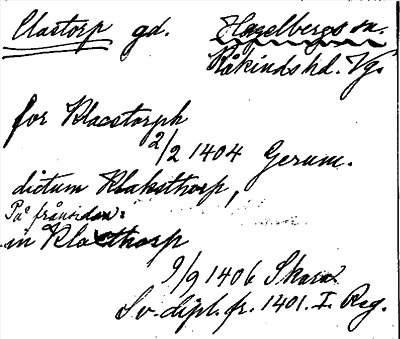 Clastorp gd. Hagelbergs sn.
Kåkinds hd. Vg.
for Klacstorph
2/2 1404 Gerum.
dictum Klaksthorp,
På frånsidan:
in Klaxthorp
9/9 1406 Skara
Sv. dipl. fr. 1401. I. Reg.